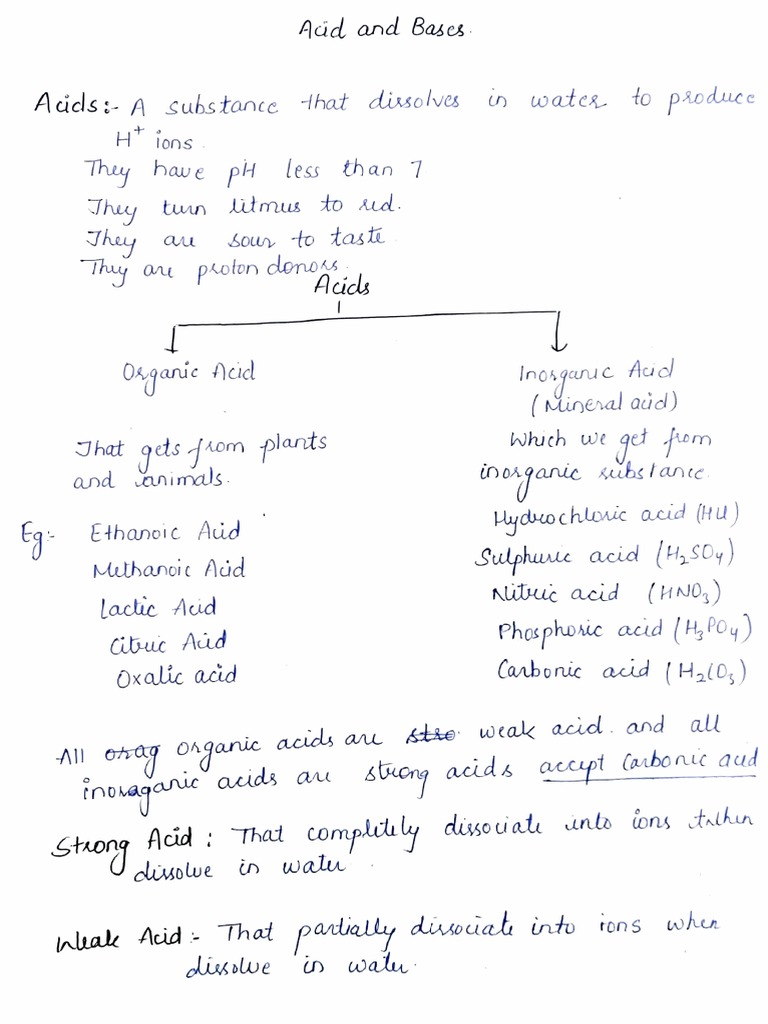 Acid and Bases.
Acids:- A substance that dissolves in water to produce
H⁺ ions.
They have pH less than 7
They turn litmus to red.
They are sour to taste
They are proton donors.
Acids
Organic Acid
Inorganic Acid
(Mineral acid)
That gets from plants
and animals.
Which we get from
inorganic substance.
Eg:- Ethanoic Acid
Methanoic Acid
Lactic Acid
Citric Acid
Oxalic acid
Hydrochloric acid (HCl)
Sulphuric acid (H₂SO₄)
Nitric acid (HNO₃)
Phosphoric acid (H₃PO₄)
Carbonic acid (H₂CO₃)
All orag organic acids are stro weak acid. and all
inoraganic acids are strong acids accept Carbonic acid
Strong Acid : That completely dissociate into ions when
dissolve in water.
Weak Acid:- That partially dissociate into ions when
dissolve in water.